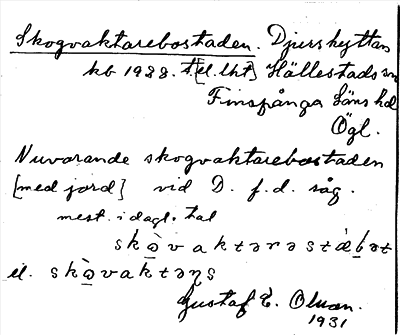 Skogvaktarebostaden. Djurshyttan
kb 1938. t. [el. lht] Hällestads sn
Finspånga läns hd
Ögl.
Nuvarande skogvaktarebostaden
[med jord] vid D. f.d. såg.
mest. i dagl. tal
skò̱vaktərəstäḇət
el. skò̱vaktəɳs
Gustaf E. Olsson.
1931